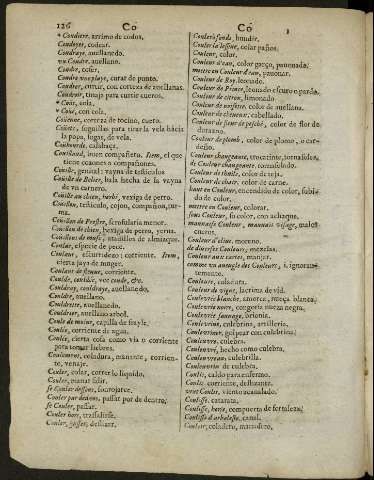 126 Co
Coudiere, arrimo de codos.
Coudoyer, codear.
Coudraye, auellanedo.
vn Coudre, auellano.
Coudre, coser.
Coudre vne playe, curar de punto.
Coudrer, curtir, con corteza de auellanas.
Coüe, cola.
Coüé, con cola.
Coüenne, corteza de tocino, cuero.
la popa, fogas, de vela.
Coühourde, calabaça.
Coüillaud, buen compañero. Item, el que
tiene coxones o compañones.
Coüille, genital: vayna de testiculos
Coüille de Belier, bala hecha de la vayna
de vn carnero.
Coüille au chien, herbe, vexiga de perro.
Coüillon, testiculo, cojon, compañon, tur-
ma.
Coüillon de Prestre, scrofularia menor.
Coüillon de chien, vexiga de perro, yerua.
Coulant, escurridero o corriente. Item,
cierta jaya de nuger.
Coulant de fleuue, corriente.
Couldre, auellano.
Couldrette, auellanedo.
Couldrier, auellano arbol.
Coulée, corriente de agua.
Coulée, cierta cosa como via o corriente
para tomar licores.
Coulement, coladura, manante, corrien-
te, venaje.
Couler, colar, correr lo liquido.
Couler, manar salir.
Couler par dedans, passar por de dentro.
se Couler, passar.
Couler hors, trassalirse.
Couler, glisser, deslizar.
Co 1
Couler à fonds, hundir.
Couler la lessiue, colar paños.
Couleur, color.
Couleur d'eau, color garço, pauonado.
mettre en Couleur d'eau, pauonar.
Couleur de Roy, leonado.
Couleur de Prince, leonado escuro o pardo.
Couleur de citron, limonado.
Couleur de noisette, color de auellana.
Couleur de cheueux, cabellado.
Couleur de fleur de pesché, color de flor de
durazno.
Couleur de plomb, color de plomo, o car-
deño.
Couleur changeante, trocatinte, tornasoles.
de Couleur changeante, tornasolado.
Couleur de thuile, color de teja.
Couleur de chair, color de carne.
haut en Couleur, encendido de color, subi-
do de color.
mettre en Couleur, colorar.
sous Couleur, so color, con achaque.
mauuaise Couleur, mauuais visage, malos
cueros.
Couleur d'oliue, moreno.
de diuerses Couleurs, mezclas.
Couleur aux cartes, manjar.
comme vn aueugle des Couleurs, i. ignoran-
temente.
Couleure, coladura.
Couleure de vigne, lacrima de vid.
Couleurée blanche, anorça, nueça blanca.
Couleurée noire, congoria nueza negra.
Couleurée sauuage, brionia.
Couleurine, culebrina, artilleria.
Couleuriner, golpear con culebrina.
Couleuure, culebra.
Couleuuré, hecho como culebra.
Couleuureau, culebrilla.
Couleuurin de culebra.
Coulis, caldo para enfermo.
Coulis, corriente, deslizante.
vent Coulis, viento acanalado.
Coulisse, catarata.
Coulisse, herse, compuerta de fortaleza.
Coulisse d'arbaleste, canal.
Couloir, coladero, manadero.